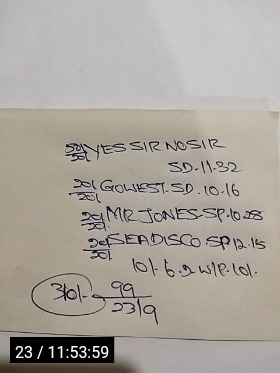 20/20/ YES SIR NO SIR
SD.11.32
20/20/ GOWEST.SD.10.16
20/20/ MR JONES-SP.10.28
20/20/ SEADISCO SP12.15
10/-6.2 W/P.10/-
3/0/- 99
23/9
23 / 11:53:59